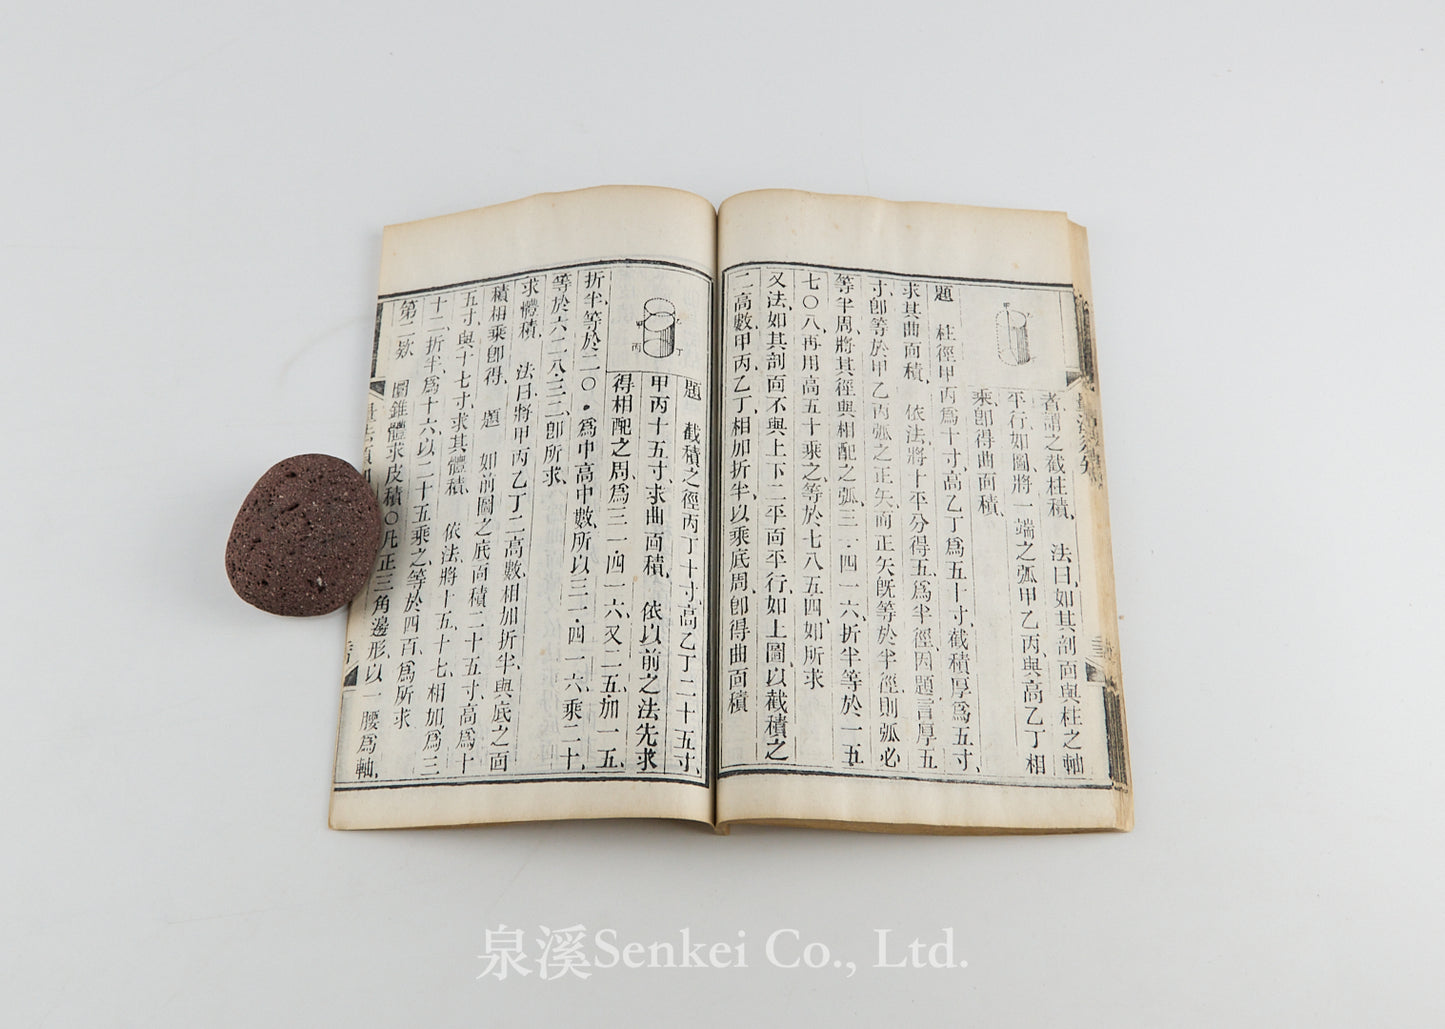 者謂之截柱積、 法曰、如其剖面與柱之軸
平行、如圖將一端之弧甲乙丙、與高乙丁相
乘、卽得曲面積、
題 柱徑甲丙爲十寸、高乙丁爲五十寸、截積厚爲五寸、
求其曲面積、 依法將十平分得五、爲半徑、因題言厚五
寸、卽等於甲乙丙弧之正矢、而正矢旣等於半徑、則弧必
等半周、將其徑與相配之弧、三一·四一六、折半等於一五
七〇八、再用高五十乘之、等於七八五四、如所求
又法、如其剖面不與上下二平面平行、如上圖、以截積之
二高數、甲丙、乙丁、相加折半、以乘底周、卽得曲面積
甲
丙
丁
題 截積之徑丙丁十寸、高乙丁二十五寸、
甲丙十五寸、求曲面積、 依以前之法先求
得相配之周、爲三一·四一六、又二五、加一五、
折半、等於二〇·爲中高中數、所以三一·四一六、乘二十、
等於六二八·三二、卽所求、
求體積、 法曰、將甲丙乙丁二高數、相加折半、與底之面
積相乘卽得、 題 如前圖之底面積二十五寸、高爲十
五寸、與十七寸、求其體積、 依法、將十五、十七、相加、爲三
十二、折半、爲十六、以二十五乘之、等於四百、爲所求
第二欵 圓錐體求皮積〇凡正三角邊形、以一腰爲軸、
泉溪Senkei Co., Ltd.